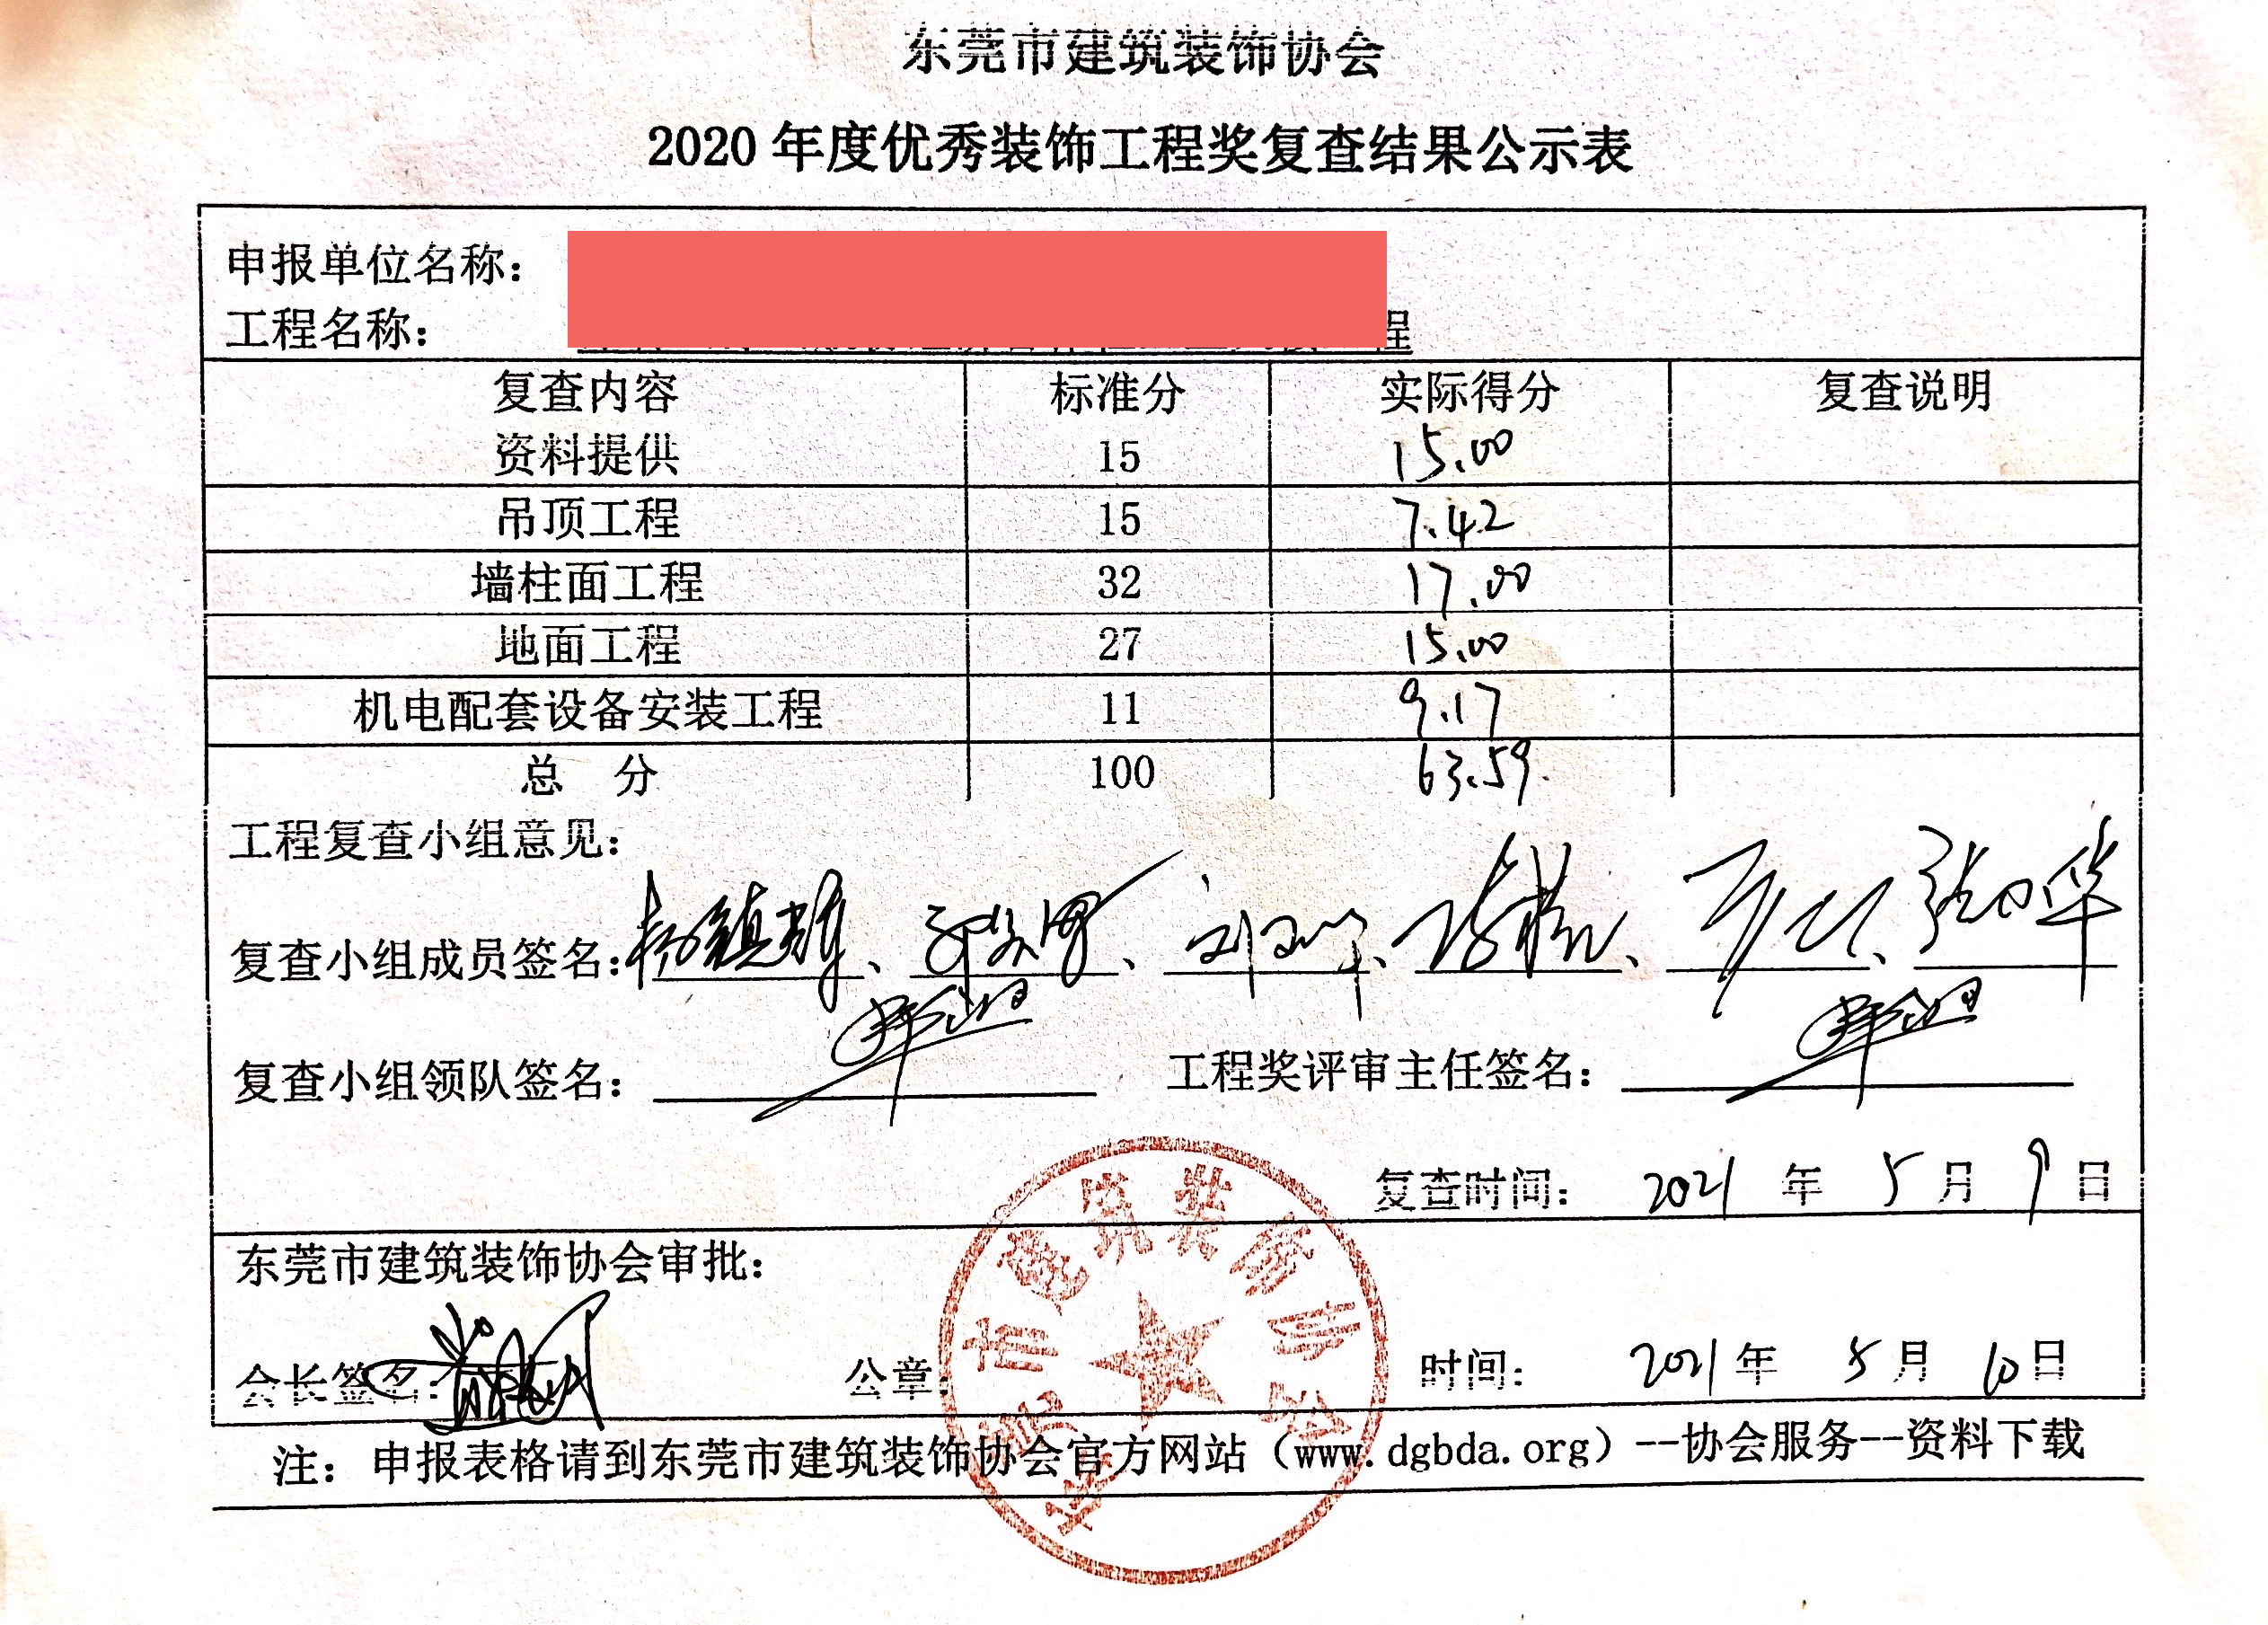 东莞市建筑装饰协会
2020 年度优秀装饰工程奖复查结果公示表
申报单位名称：
工程名称： 程
复查内容 标准分 实际得分 复查说明
资料提供 15 15.00
吊顶工程 15 7.42
墙柱面工程 32 17.00
地面工程 27 15.00
机电配套设备安装工程 11 9.17
总 分 100 63.59.
工程复查小组意见：
复查小组成员签名：杨镇雄、、、、、
复查小组领队签名： 工程奖评审主任签名：
复查时间： 2021 年 5 月 9 日
东莞市建筑装饰协会审批：
会长签名： 公章： 时间： 2021 年 5 月 10 日
东莞市建筑装饰协会
注： 申报表格请到东莞市建筑装饰协会官方网站（www.dgbda.org）--协会服务--资料下载